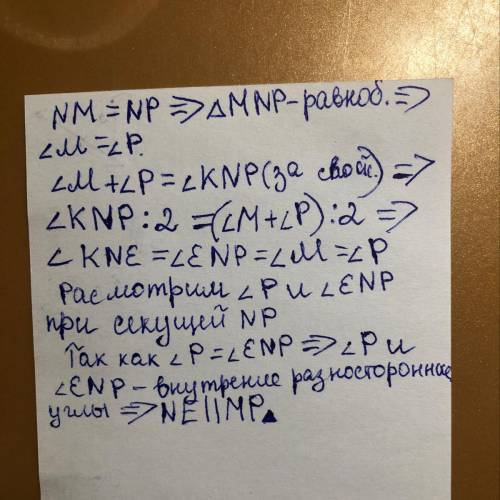 NM = NP => △MNP - равноб. =>
∠M = ∠P.
∠M + ∠P = ∠KNP (за свой.) =>
∠KNP : 2 = (∠M + ∠P) : 2 =>
∠KNE = ∠ENP = ∠M = ∠P
Расмотрим ∠P и ∠ENP
при секущей NP
Так как ∠P = ∠ENP => ∠P и
∠ENP - внутрение разносторонние
углы => NE || MP▲